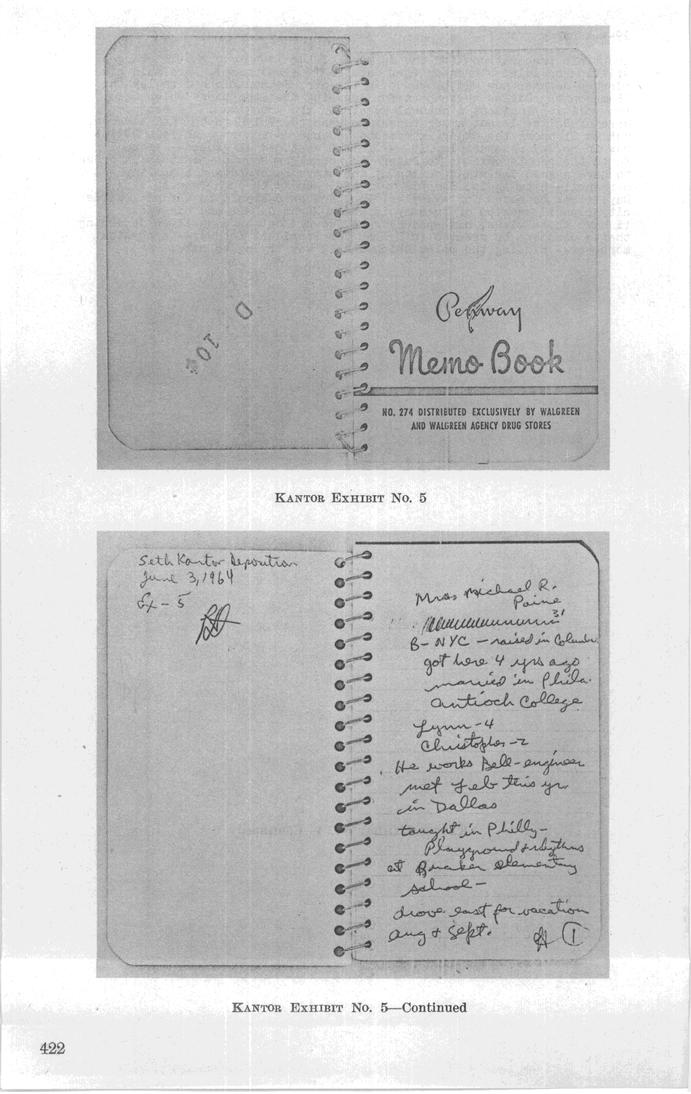 D - 104
Penway
Memo Book
NO. 274 DISTRIBUTED EXCLUSIVELY BY WALGREEN
AND WALGREEN AGENCY DRUG STORES
KANTOR EXHIBIT No. 5
Seth Kantor Deposition
June 3, 1964
Ex - 5
Mrs Michael R.
Paine
31
B - NYC - raised in Columbus
got here 4 yrs ago
married in Phila.
Antioch College
Lynn - 4
Christopher - 2
He works Bell - engineer
met Feb this yr
in Dallas
taught in Philly -
Playground & rhythms
at Quaker elementary
school -
drove east for vacation
Aug & Sept.
1
KANTOR EXHIBIT No. 5—Continued
422